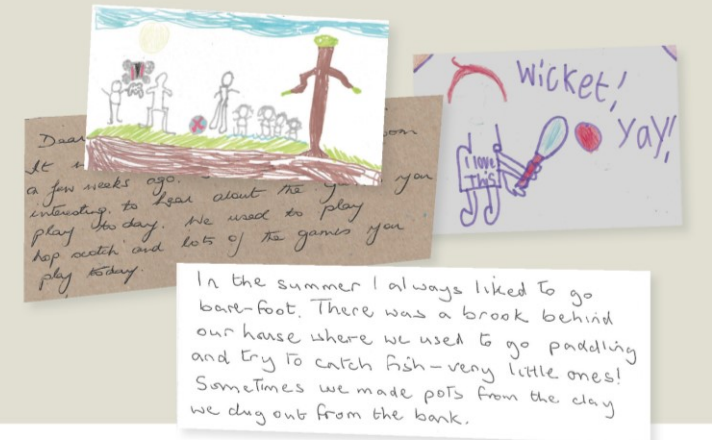 wicket!
yay!
I love
This
Dear
a few weeks ago.
interesting to hear about the you
play today. We used to play
hop scotch and lots of the games you
play today.
In the summer I always liked to go
bare-foot. There was a brook behind
our house where we used to go paddling
and try to catch fish – very little ones!
Sometimes we made pots from the clay
we dug out from the bank.